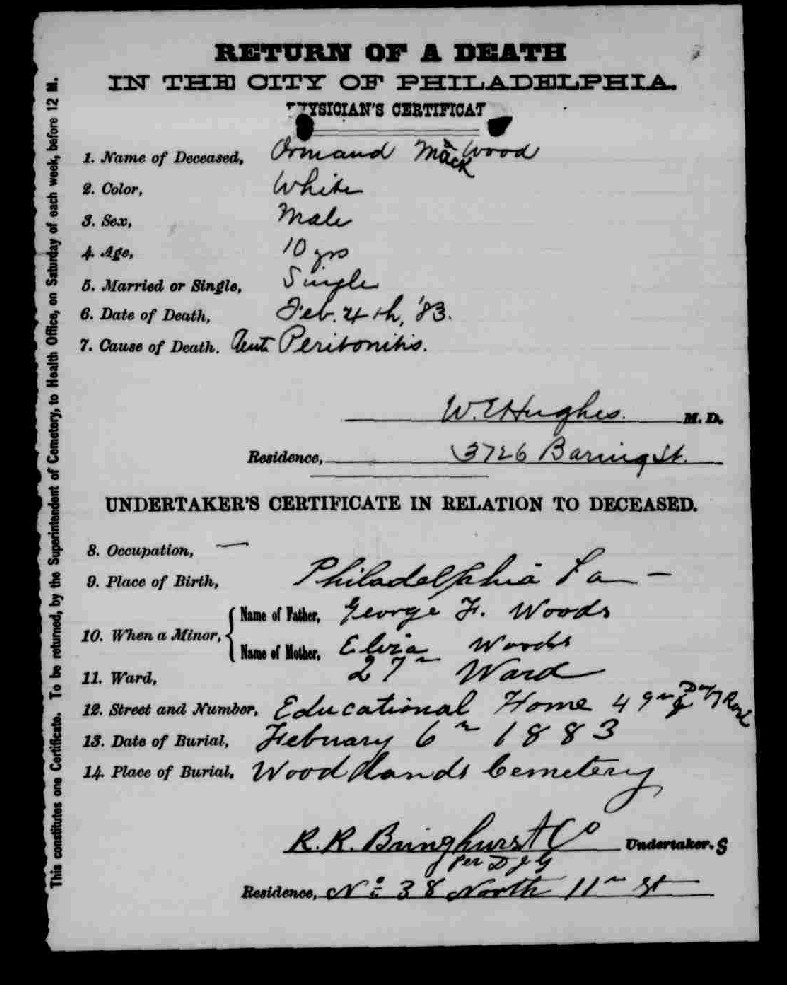 RETURN OF A DEATH
IN THE CITY OF PHILADELPHIA.
PHYSICIAN'S CERTIFICAT
1. Name of Deceased, Ormand Mack Wood
2. Color, White
3. Sex, Male
4. Age, 10 yrs
5. Married or Single, Single
6. Date of Death, Feb. 4th, '83.
7. Cause of Death. Peritonitis.
W. E. Hughes. M. D.
Residence, 3726 Baring St.
UNDERTAKER'S CERTIFICATE IN RELATION TO DECEASED.
8. Occupation, —
9. Place of Birth, Philadelphia Pa —
10. When a Minor, { Name of Father, George F. Woods
Name of Mother, Elvia Woods
11. Ward, 27th Ward
12. Street and Number, Educational Home 49th & Road
13. Date of Burial, Febuary 6th 1883
14. Place of Burial, Woodlands Cemetery
R. R. Bringhurst & Co Undertaker.s
per D J G
Residence, No 38 North 11th St
This constitutes one Certificate. To be returned, by the Superintendent of Cemetery, to Health Office, on Saturday of each week, before 12 M.